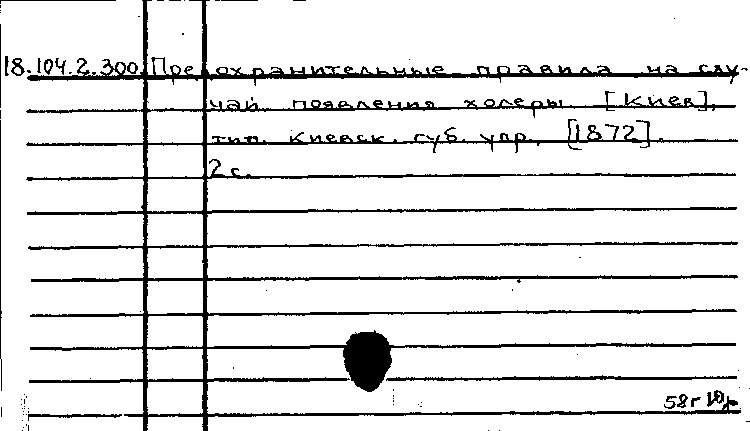 18.104.2.300 Предохранительные правила на слу-
чай появления холеры. [Киев],
тип. Киевск. губ. упр., [1872].
2 с.
58г